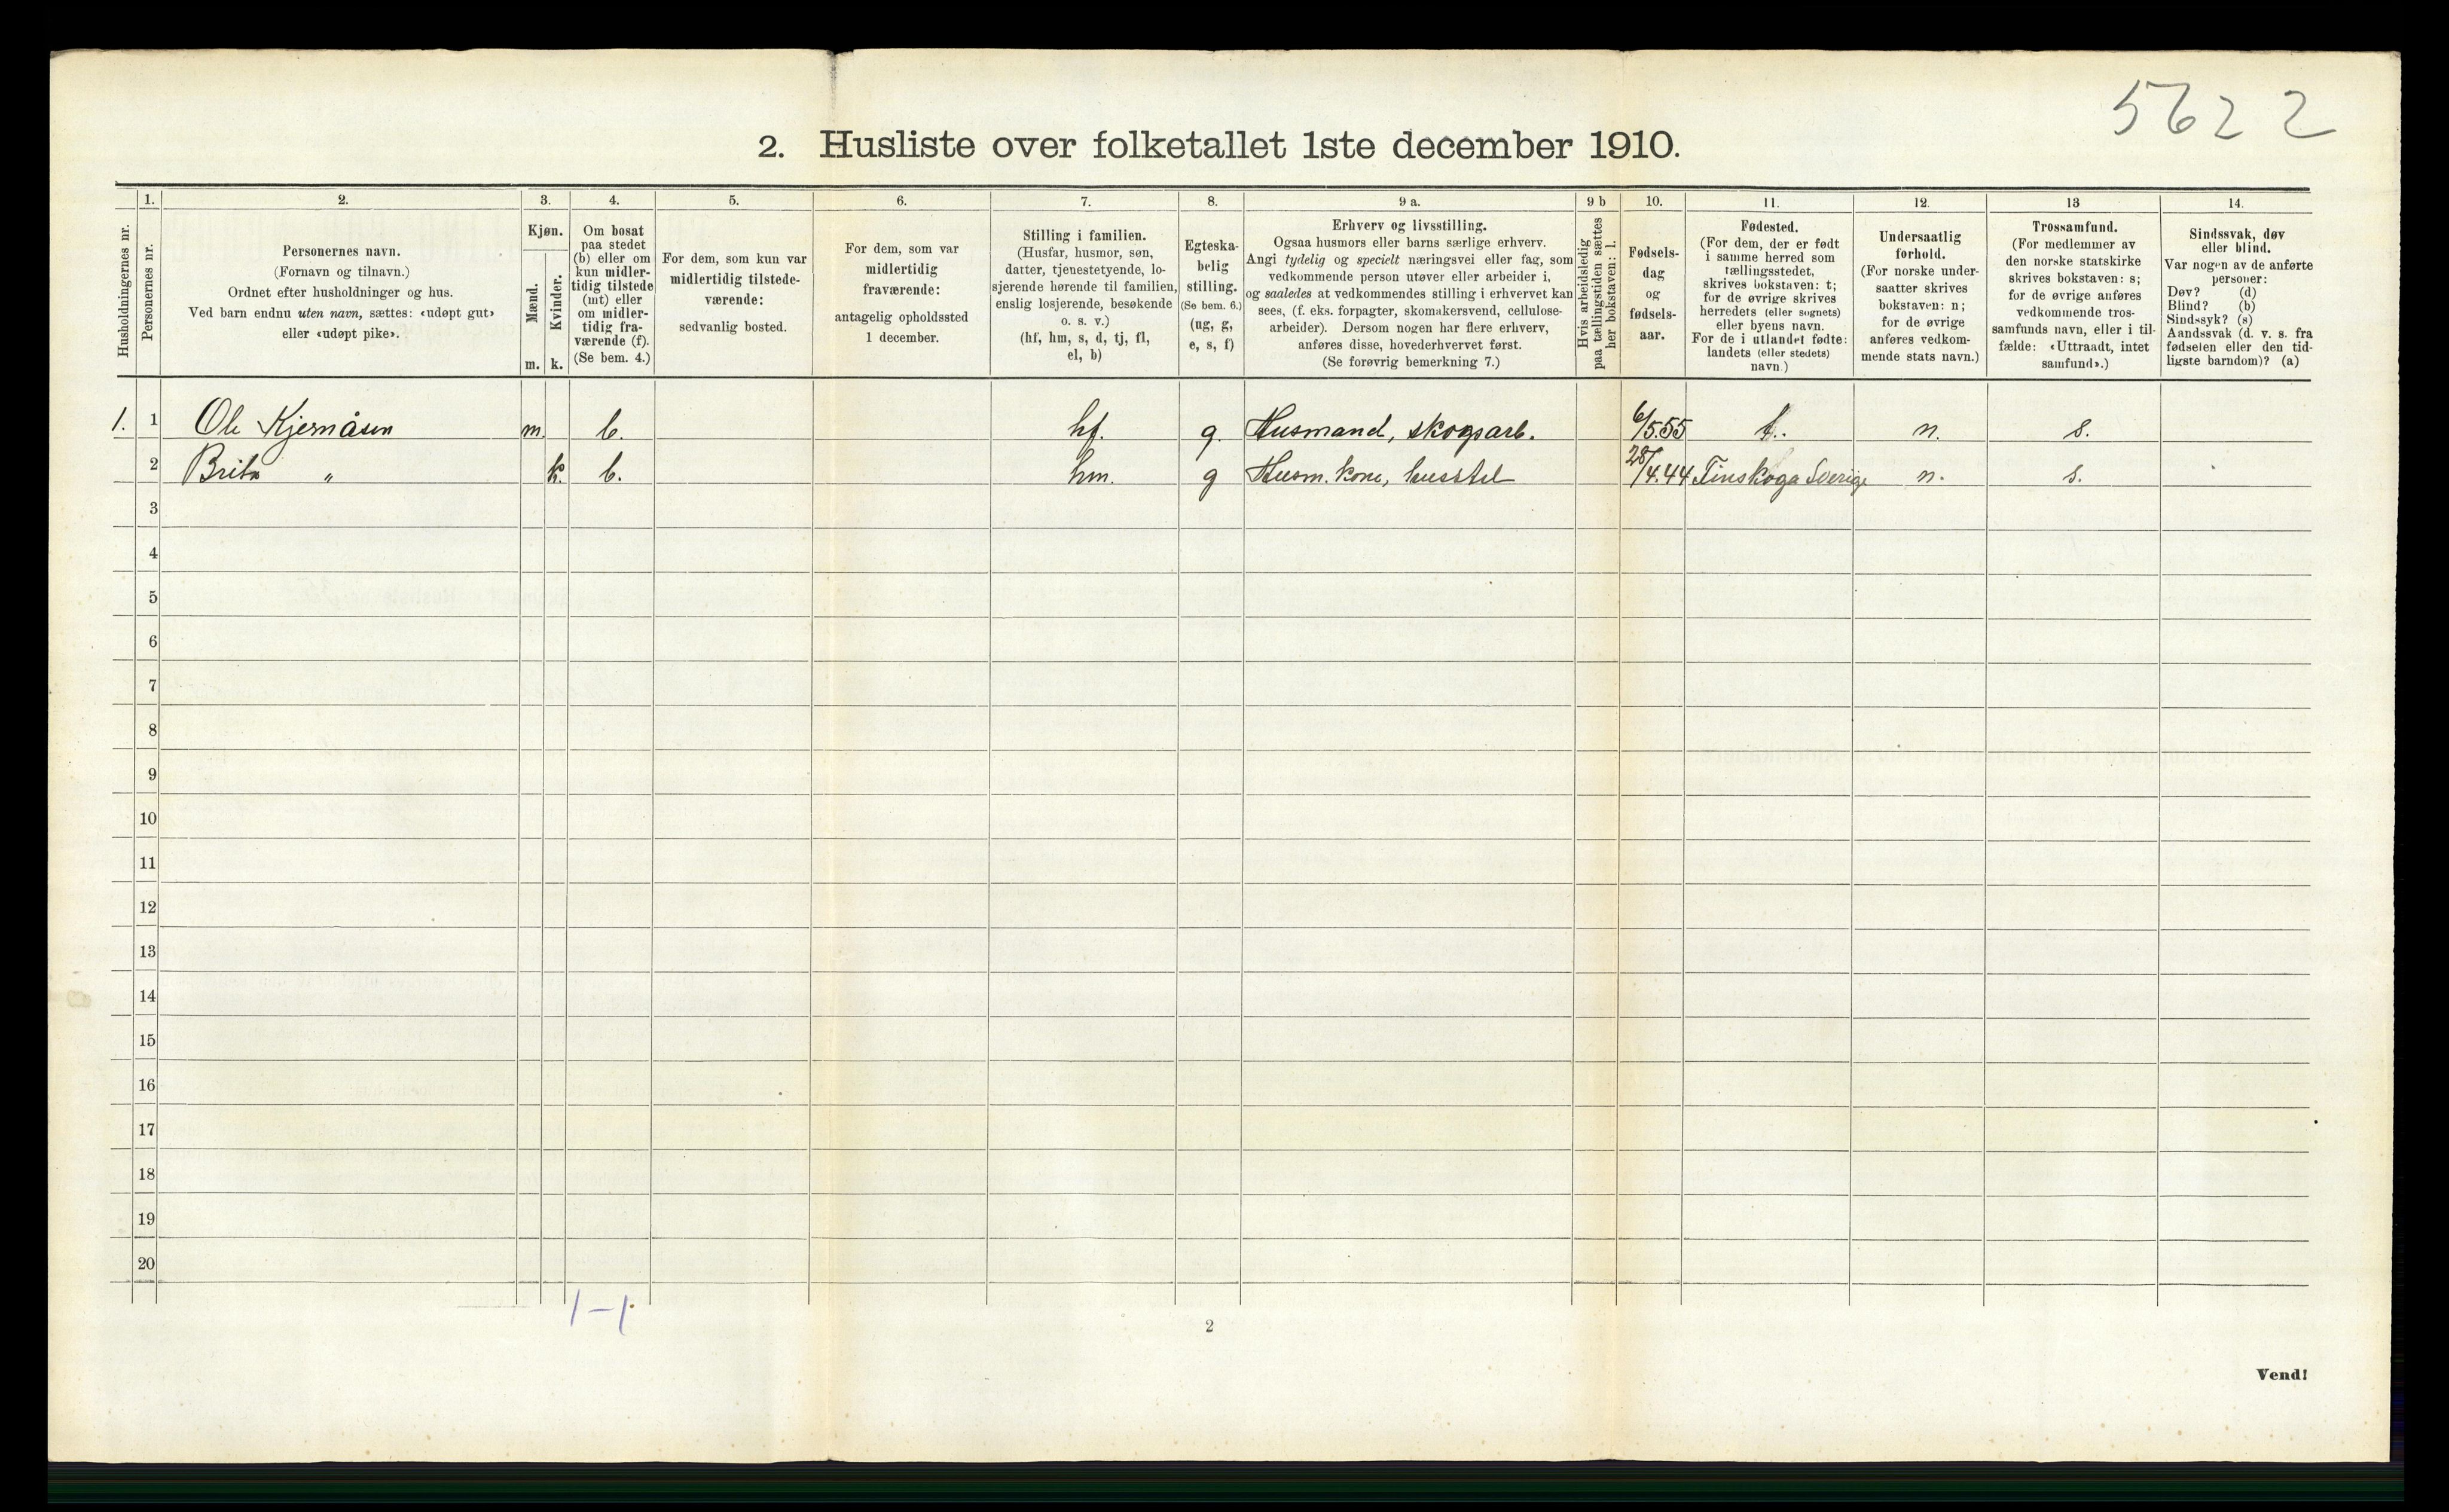 5622
2. Husliste over folketallet 1ste december 1910.
1. 2. 3. 4. 5. 6. 7. 8. 9 a. 9 b 10. 11. 12. 13 14.
Husholdningernes nr.
Personernes nr.
Personernes navn.
(Fornavn og tilnavn.)
Ordnet efter husholdninger og hus.
Ved barn endnu uten navn, sættes: «udøpt gut»
eller «udøpt pike».
Kjøn.
Mænd.
Kvinder.
m. k.
Om bosat
paa stedet
(b) eller om
kun midler-
tidig tilstede
(mt) eller
om midler-
tidig fra-
værende (f).
(Se bem. 4.)
For dem, som kun var
midlertidig tilstede-
værende:
sedvanlig bosted.
For dem, som var
midlertidig
fraværende:
antagelig opholdssted
1 december.
Stilling i familien.
(Husfar, husmor, søn,
datter, tjenestetyende, lo-
sjerende hørende til familien,
enslig losjerende, besøkende
o. s. v.)
(hf, hm, s, d, tj, fl,
el, b)
Egteska-
belig
stilling.
(Se bem. 6.)
(ug, g,
e, s, f)
Erhverv og livsstilling.
Ogsaa husmors eller barns særlige erhverv.
Angi tydelig og specielt næringsvei eller fag, som
vedkommende person utøver eller arbeider i,
og saaledes at vedkommendes stilling i erhvervet kan
sees, (f. eks. forpagter, skomakersvend, cellulose-
arbeider). Dersom nogen har flere erhverv,
anføres disse, hovederhvervet først.
(Se forøvrig bemerkning 7.)
Hvis arbeidsledig
paa tællingstiden sættes
her bokstaven: l.
Fødsels-
dag
og
fødsels-
aar.
Fødested.
(For dem, der er født
i samme herred som
tællingsstedet,
skrives bokstaven: t;
for de øvrige skrives
herredets (eller sognets)
eller byens navn.
For de i utlandet fødte:
landets (eller stedets)
navn.)
Undersaatlig
forhold.
(For norske under-
saatter skrives
bokstaven: n;
for de øvrige
anføres vedkom-
mende stats navn.)
Trossamfund.
(For medlemmer av
den norske statskirke
skrives bokstaven: s;
for de øvrige anføres
vedkommende tros-
samfunds navn, eller i til-
fælde: «Uttraadt, intet
samfund».)
Sindssvak, døv
eller blind.
Var nogen av de anførte
personer:
Døv? (d)
Blind? (b)
Sindssyk? (s)
Aandssvak (d. v. s. fra
fødselen eller den tid-
ligste barndom)? (a)
1. 1 Ole Kjernåsen m. b. hf. g. Husmand, skogsarb. 6/5.55 t. n. s.
2 Brita " k. b. hm. g Husm. kone, husstel 28/4.44 Tinskoga Sverige n. s.
3
4
5
6
7
8
9
10
11
12
13
14
15
16
17
18
19
20
1-1
2
Vend!